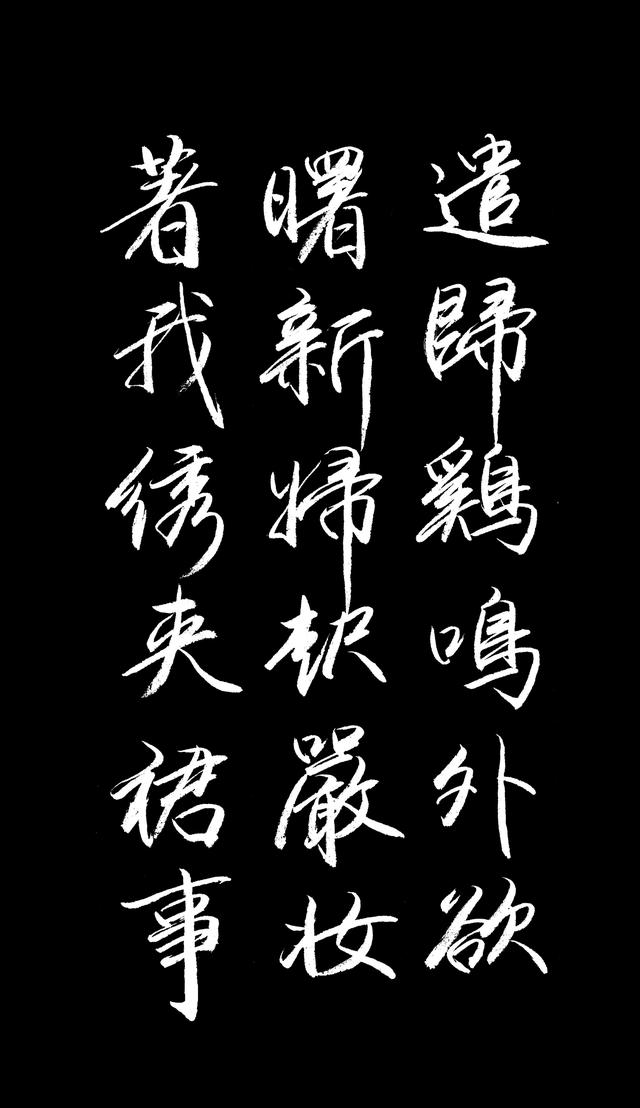 遣歸鷄鳴外欲
曙新婦起嚴妝
著我绣夹裙事